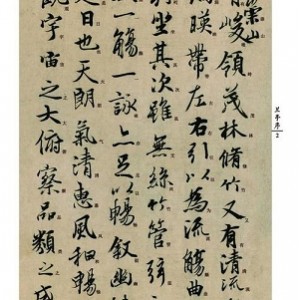 崇山
有峻領茂林脩竹又有清流
湍暎帶左右引以為流觴曲
列坐其次雖無絲竹管弦
一觴一詠亦足以暢叙幽情
是日也天朗氣清惠風和暢
觀宇宙之大俯察品類之盛
兰亭序
2